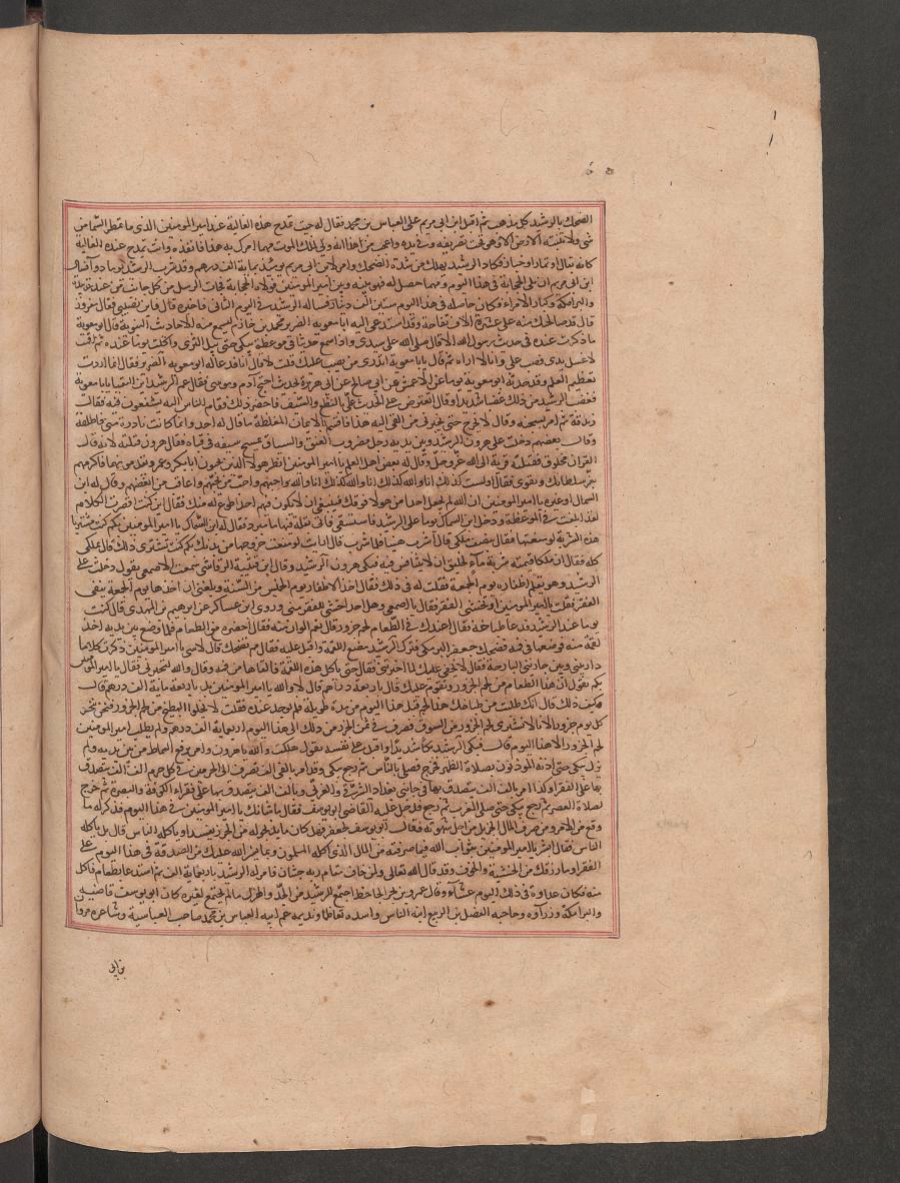 الضحك بالرشيد كل مذهب ثم اقبل ابن ابي مريم على العباس بن محمد فقال له جيت تمدح هذه الغالية عند امير المومنين الذي ما تمطر السما من
شي ولا تنبته الارض الا وهو تحت تصريفه وفي يده واعجب من هذا الله ولي لملك الموت مهما امرك به هذا فانفذه وانت تمدح عنده الغالية
كانه بقال او تمار او خباز فكاد الرشيد يهلك من شدة الضحك وامر لابن ابي مريم يوميذ بماية الف درهم وقد شرب الرشيد يوما دوا فسال
ابن ابي مريم ان يلي الحجابة في هذا اليوم ومهما حصل له فهو بينه وبين امير المومنين فولاه الحجابة فجات الرسل من كل جانب من عند زبيدة
والبرامكة وكبار الامراء وكان حاصله في هذا اليوم ستين الف دينار فساله الرشيد في اليوم الثاني فاخبره قال فاين نصيبي فقال
قال قد صالحتك منه على عشرة الاف تفاحة وقد استدعي اليه ابا معوية الضرير محمد بن خازم ليسمع منه الاحاديث النبوية قال ابو معوية
ما ذكرت عنده في حديث رسول الله الا قال صلى الله على سيدي واذا سمع حديثا فيه موعظة يبكي حتى يبل الثرى واكلت يوما عنده ثم قمت
لاغسل يدي فصب علي وانا لا اراه ثم قال يا ابا معوية اتدري من يصب عليك قلت لا قال انا فدعا له ابو معوية الضرير فقال انما اردت
تعظيم العلم وقد حدثه ابو معوية يوما عن الاعمش عن ابي صالح عن ابي هريرة لحديث احتج آدم وموسى فقال عم الرشيد اين التقيا يا ابا معوية
فغضب الرشيد من ذلك غضبا شديدا وقال اتعترض على الحديث علي بالنطع والسيف فاحضر ذلك فقام الناس اليه يتشفعون فيه فقال
زندقة ثم امر بسجنه وقال لا يخرج حتى يخبرني من القى اليه هذا فاقسم بالايمان المغلظة ما قال له احد وانما كانت نادرة مني فاطلقه
وقال بعضهم دخلت على هرون الرشيد وبين يديه رجل مضروب العنق والسياف يمسح سيفه في قفاه فقال هرون قتلته لانه قال
القران مخلوق فقتله قربة الى الله عز وجل وقال له بعض اهل العلم يا امير المومنين انظر هولاء الذين يحبون ابا بكر وعمر ويقدمونهما فاكرمهم
بعز سلطانك وتقوى فقال اولست كذلك انا والله كذلك انا والله كذلك انا والله واحبهم واحب من يحبهم واعاقب من ابغضهم وقال له ابن
السماك او غيره يا امير المومنين ان الله لم يجعل احدا من هولا فوقك فينبغي ان لا يكون فيهم احد اطوع له منك فقال ابن كنت اقصرت الكلام
لقد ابلغت في الموعظة ودخل ابن السماك يوما على الرشيد فاستسقى فاتى بقلة فيها ما مبرد فقال له ابن السماك يا امير المومنين بكم كنت مشتريا
هذه الشربة لو منعتها فقال بنصف ملكي قال اشرب هنيا فلما شرب قال ارايت لو منعت خروجها من بدنك بكم كنت تشتري ذلك قال بملكي
كله فقال ان ملكا قيمته شربة مآء لخليق ان لا يتنافس فيه فبكى هرون الرشيد وقال ابن قتيبة الرقاشي سمعت الاصمعي يقول دخلت على
الرشيد وهو يقلم اظفاره يوم الجمعة فقلت له في ذلك فقال اخذ الاظفار يوم الخميس من السنة وبلغني ان اخذها يوم الجمعة ينفي
الفقر فقلت يا امير المومنين او تخشى الفقر فقال يا اصمعي وهل احد اخشى للفقر مني وروى ابن عساكر عن ابراهيم بن المهدي قال كنت
يوما عند الرشيد فدعا طباخه فقال اعندك في الطعام لحم جزور قال نعم الوان منه فقال احضره مع الطعام فلما وضع بين يديه اخذ
لقمة منه فوضعها في فيه فضحك جعفر البرمكي فترك الرشيد مضغ اللقمة واقبل عليه فقال مم تضحك قال لا شي يا امير المومنين ذكرت كلاما
دار بيني وبين جاريتي البارحة فقال له بحقي عليك لما اخبرتني فقال حتى تاكل هذه اللقمة فالقاها من فيه وقال والله لتخبرني فقال يا امير المومنين
بكم تقول ان هذا الطعام من لحم الجزور يقوم عليك قال باربعة دراهم قال لا والله يا امير المومنين بل باربعة ماية الف درهم قال
وكيف ذلك قال انك طلبت من طباخك هذا لحم جزور قبل هذا اليوم من مدة طويلة فلم يوجد عنده فقلت لا يخلوا المطبخ من لحم الجزور فنحن ننحر
كل يوم جزورا لانا لا نشتري لحم الجزور من السوق فصرف في ثمن الجزر من ذلك الى هذا اليوم اربعماية الف درهم ولم يطلب امير المومنين
لحم الجزور الا هذا اليوم قال فبكى الرشيد بكاء شديدا واقبل على نفسه يقول هلكت والله يا هرون وامر برفع السماط من بين يديه ولم
يزل يبكي حتى اذنه الموذنون بصلاة الظهر فخرج فصلى بالناس ثم رجع يبكي وقد امر بالفي الف تصرف الى الحرمين في كل حرم الف الف تصدق
بها على الفقراء وكذا امر بالف الف يتصدق بها في جانبي بغداد الشرقي والغربي وبالف الف يتصدق بها على فقراء الكوفة والبصرة ثم خرج
لصلاة العصر ثم رجع يبكي حتى صلى المغرب ثم رجع فدخل عليه القاضي ابو يوسف فقال ما شانك يا امير المومنين في هذا اليوم فذكر له ما
وقع من الامر وما صرف المال الجزيل من اجل شهوته فقال ابو يوسف لجعفر هل كان ما يذبحونه من الجزر يفسد او ياكله الناس قال بل ياكله
الناس فقال ابشر يا امير المومنين بثواب الله فيما صرفته من المال الذي اكله المسلمون وبما يسر الله عليك من الصدقة في هذا اليوم على
الفقراء وما رزقك من الخشية والخوف وقد قال الله تعالى ولمن خاف مقام ربه جنتان فامر له الرشيد باربعماية الف ثم استدعا بطعام فاكل
منه فكان غداوه في ذلك اليوم عشآء وقال عمرو بن بحر الجاحظ اجتمع للرشيد من الجد والهزل ما لم يجتمع لغيره كان ابو يوسف قاضيه
والبرامكة وزرآوه وحاجبه الفضل بن الربيع انبه الناس واشده تعاظما ونديمه عم ابيه العباس بن محمد صاحب العباسية وشاعره مروا
بن ابي